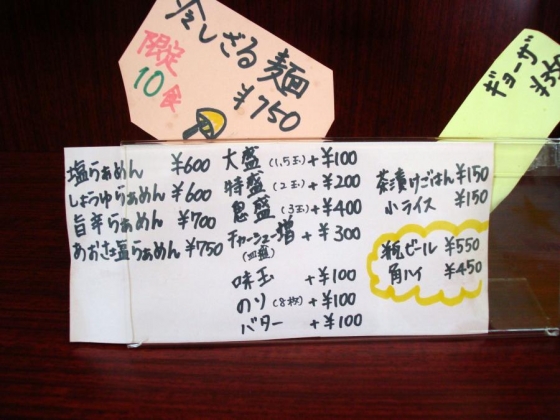 冷しざる麺
限定
10食
¥750
ギョーザ
塩らぁめん ¥600
しょうゆらぁめん ¥600
旨辛らぁめん ¥700
あおさ塩らぁめん ¥750
大盛(1.5玉)+¥100
特盛(2玉)+¥200
(3玉)+¥400
チャーシュー増 +¥300
味玉 +¥100
のり(8枚)+¥100
バター +¥100
茶漬けごはん ¥150
小ライス ¥150
瓶ビール ¥550
角ハイ ¥450